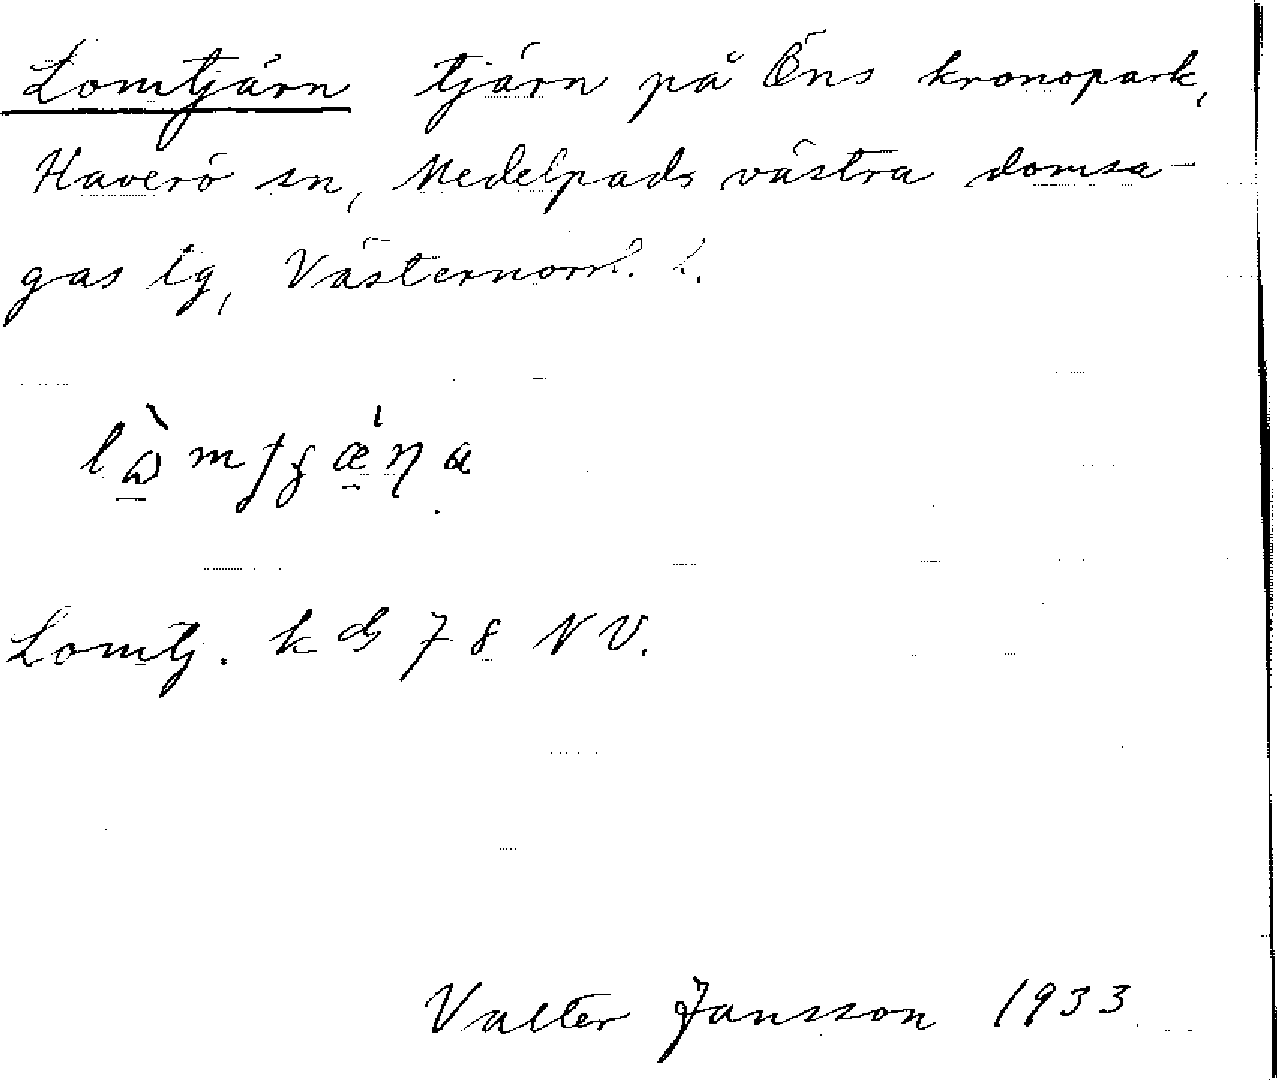 Lomtjärn tjärn på Öns kronopark,
Haverö sn, Medelpads västra domsa-
gas tg, Västernorrl. l.
Lomtj. k ds 78 NV.
Valter Jansson 1933